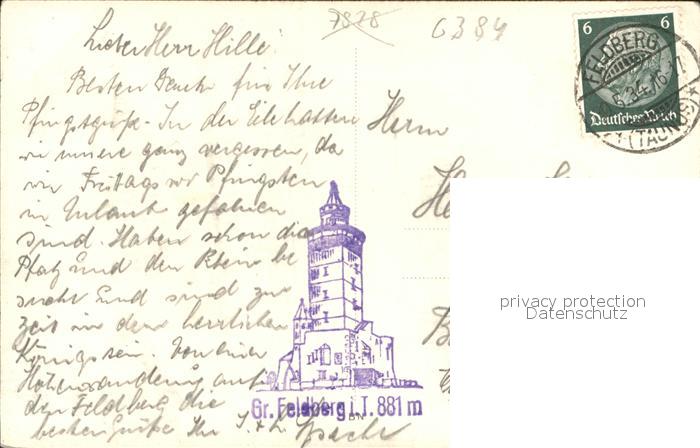 7878
6384
Lieber Herr Hille!
Besten Dank für Ihre
Pfingstgrüße. In der Eile hatten
wir unsere ganz vergessen, da
wir Freitags vor Pfingsten
in Urlaub gefahren
sind. Haben schon die
Pfalz und den Rhein be
sucht und sind zur
Zeit in dem herrlichen
Königstein. Von einer
Höhenwanderung auf
den Feldberg die
besten Grüße Ihr
Herrn
6 6
Deutsches Reich
FELDBERG
(TAUNUS)
Gr. Feldberg i. T. 881 m
privacy protection
Datenschutz